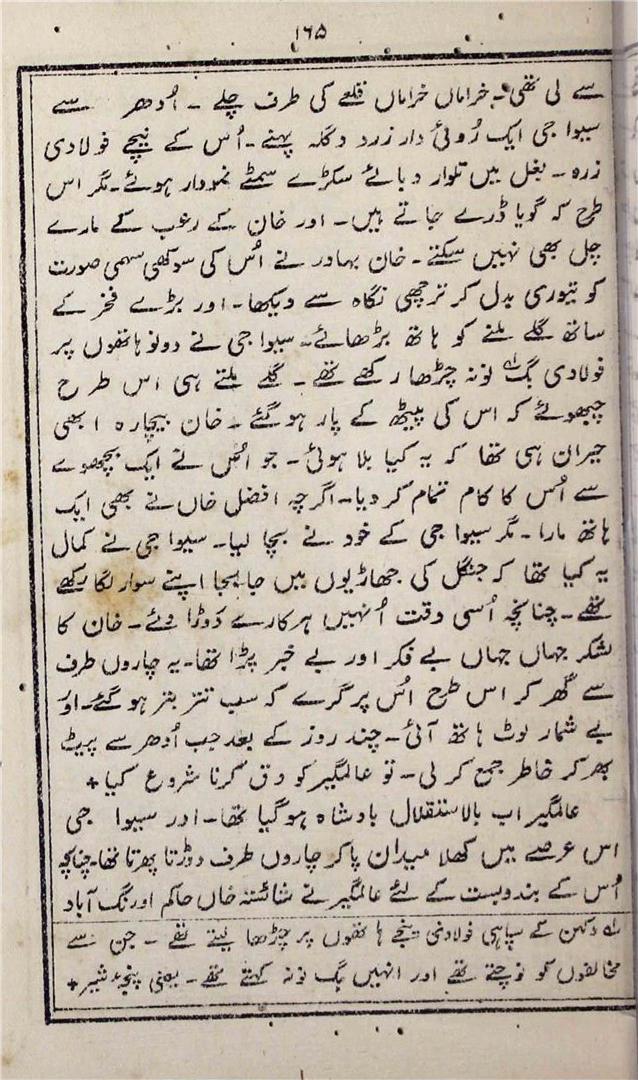 ۱۶۵
سے لی تھی۔ خراماں خراماں قلعے کی طرف چلے ۔ اُدھر سے
سیوا جی ایک رُوئی دار زرد دگلہ پہنے۔ اُس کے نیچے فولادی
زرہ ۔ بغل میں تلوار دبائے سکڑے سمٹے نمودار ہوئے۔ مگر اس
طرح کہ گویا ڈرے جاتے ہیں۔ اور خان کے رعب کے مارے
چل بھی نہیں سکتے۔ خان بہادر نے اُس کی سوکھی سہمی صورت
کو تیوری بدل کر ترچھی نگاہ سے دیکھا۔ اور بڑے فخر کے
ساتھ گلے ملنے کو ہاتھ بڑھائے۔ سیوا جی نے دونو ہاتھوں پر
فولادی بگ نونہ چڑھا رکھے تھے ۔ گلے ملتے ہی اس طرح
چبھوئے کہ اس کی پیٹھ کے پار ہو گئے ۔ خان بیچارہ ابھی
حیران ہی تھا کہ یہ کیا بلا ہوئی ۔ جو اُس نے ایک بچھوے
سے اُس کا کام تمام کر دیا۔ اگرچہ افضل خاں نے بھی ایک
ہاتھ مارا ۔ مگر سیوا جی کے خود نے بچا لیا۔ سیوا جی نے کمال
یہ کیا تھا کہ جنگل کی جھاڑیوں میں جا بجا اپنے سوار لگا رکھے
تھے ۔ چنانچہ اُسی وقت اُنہیں ہرکارے دَوڑا دئے ۔ خان کا
لشکر جہاں جہاں بے فکر اور بے خبر پڑا تھا۔ یہ چاروں طرف
سے گھر کر اس طرح اُس پر گرے کہ سب تتر بتر ہو گئے۔ اور
بے شمار لوٹ ہاتھ آئی۔ چند روز کے بعد جب اُدھر سے پیٹ
بھر کر خاطر جمع کر لی ۔ تو عالمگیر کو دق کرنا شروع کیا +
عالمگیر اب بالاستقلال بادشاہ ہو گیا تھا۔ اور سیوا جی
اس عرصے میں کھلا میدان پا کر چاروں طرف دوڑتا پھرتا تھا۔ چنانچہ
اُس کے بندوبست کے لئے عالمگیر نے شائستہ خاں حاکم اورنگ آباد
لہ دکھن کے سپاہی فولادی پنجے ہاتھوں پر چڑھا لیتے تھے ۔ جن سے
مخالفوں کو نوچتے تھے اور انہیں بگ نونہ کہتے تھے ۔ یعنی پنجہ شیر +